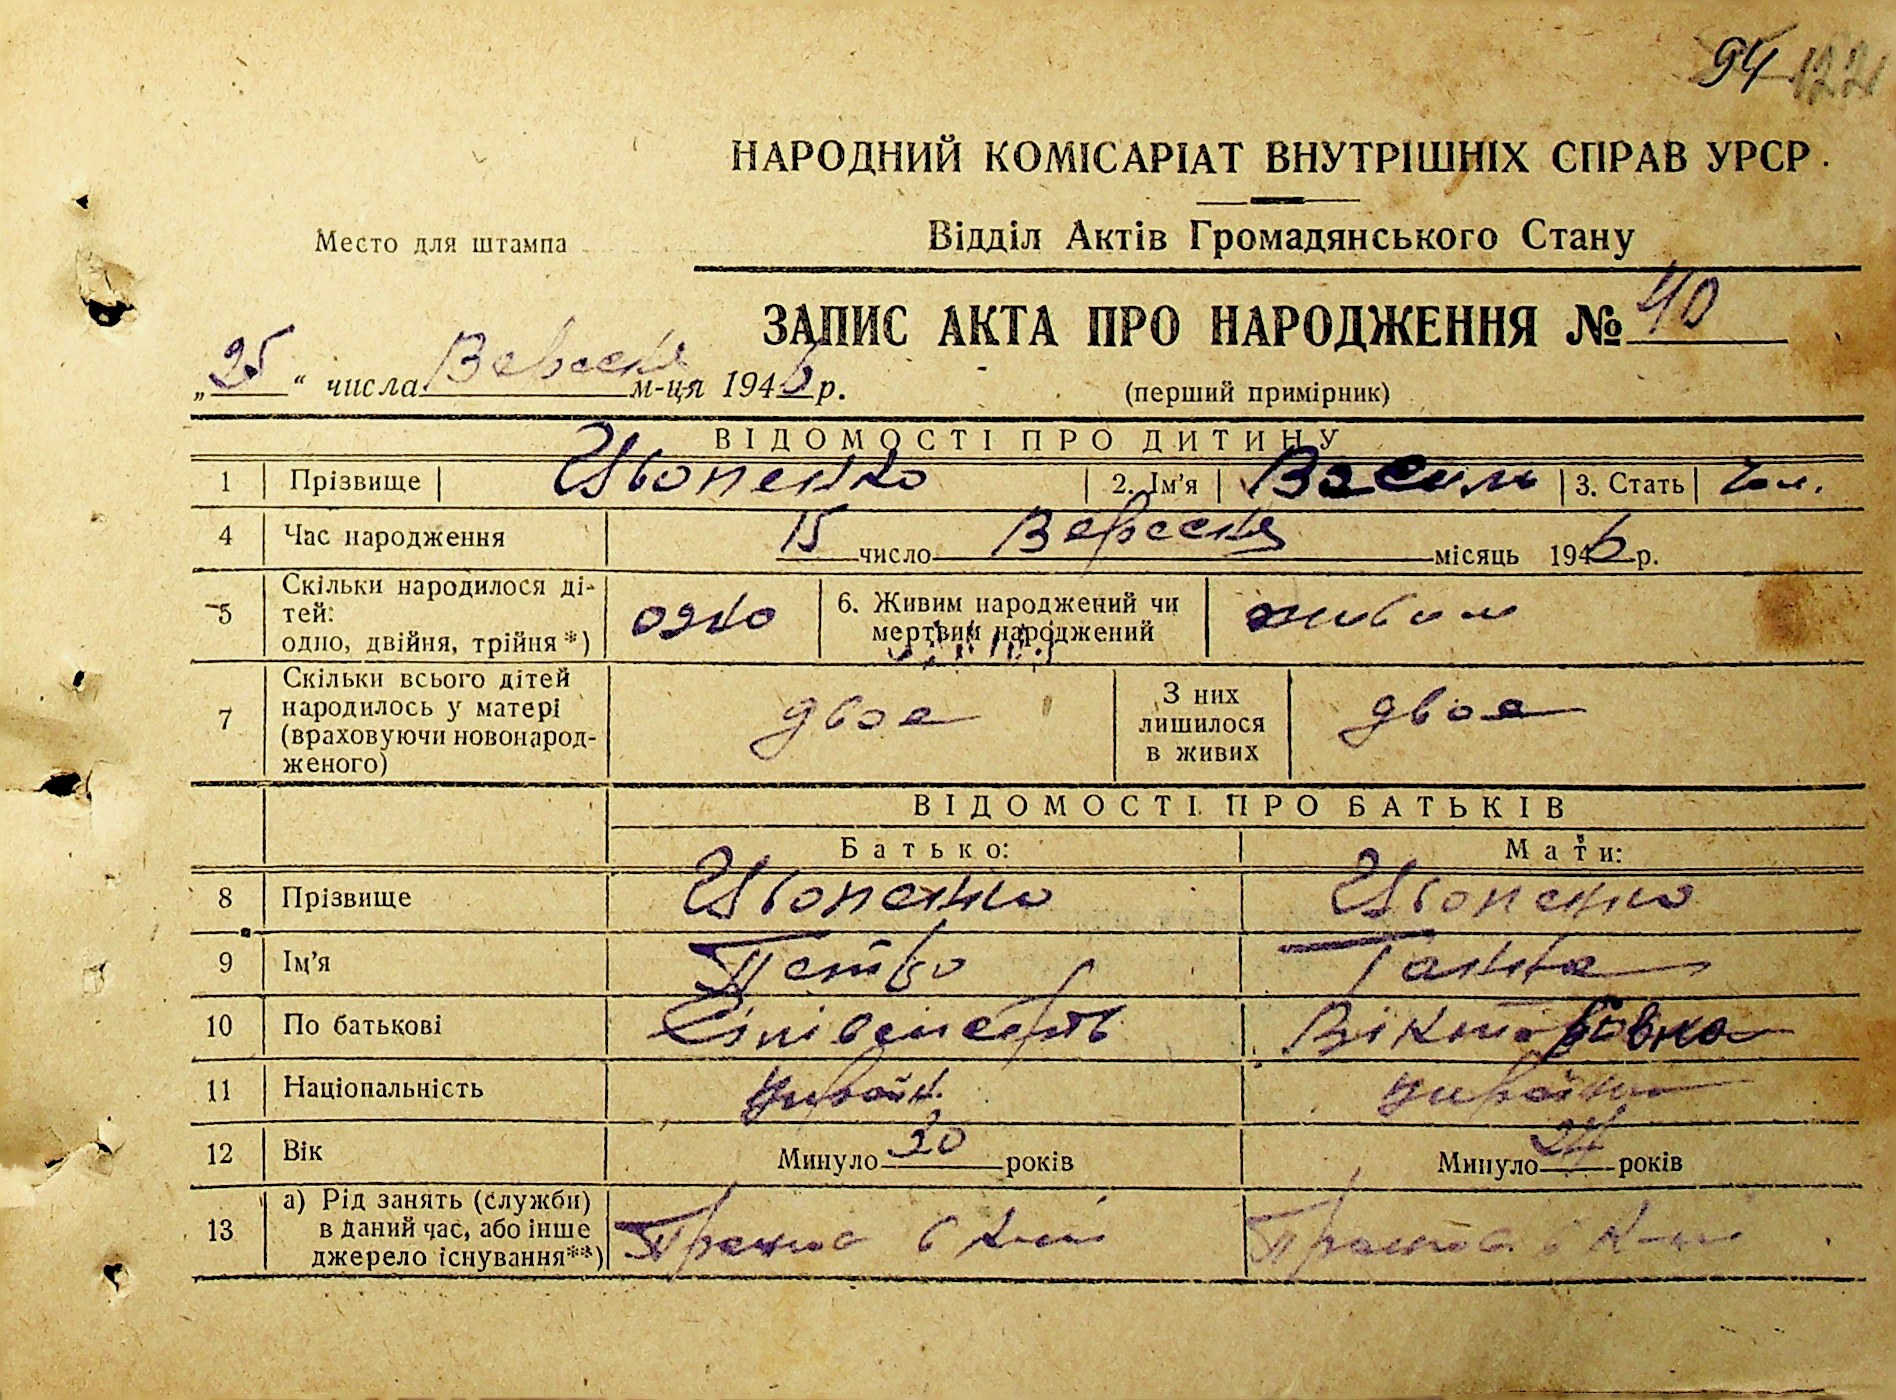 94 122
НАРОДНИЙ КОМІСАРІАТ ВНУТРІШНІХ СПРАВ УРСР
Место для штампа
Відділ Актів Громадянського Стану
ЗАПИС АКТА ПРО НАРОДЖЕННЯ № 40
„25“ числа Вересня м-ця 1946 р.
(перший примірник)
ВІДОМОСТІ ПРО ДИТИНУ
1 Прізвище 2. Ім’я Василь 3. Стать Чол.
4 Час народження 15 число Вересня місяць 1946 р.
5 Скільки народилося ді-
тей:
одно, двійня, трійня*) одно 6. Живим народжений чи
мертвим народжений живим
7 Скільки всього дітей
народилось у матері
(враховуючи новонарод-
женого) двоє З них
лишилося
в живих двоє
ВІДОМОСТІ ПРО БАТЬКІВ
Батько: Мати:
8 Прізвище
9 Ім’я Петро Ганна
10 По батькові Вікторовна
11 Національність Україн.
12 Вік Минуло 30 років Минуло 24 років
13 а) Рід занять (служби)
в даний час, або інше
джерело існування**)